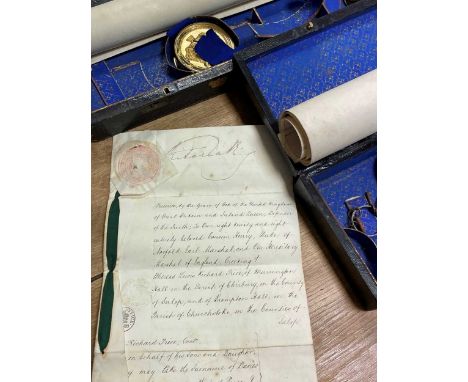 Victoria R
Victoria by the Grace of God of the United Kingdom
of Great Britain and Ireland Queen, Defender
of the Faith; To Our right trusty and right
entirely beloved Cousin Henry, Duke of
Norfolk, Earl Marshal, and Our Hereditary
Marshal of England Greeting!
Whereas Richard of
Hall in the Parish of Chirbury, in the County
of Salop, and of Brompton Hall, in the
Parish of Churchstoke, in the Counties of
Salop
Richard Price, Court
in behalf of his son and Daughter
may take the surname of Davies